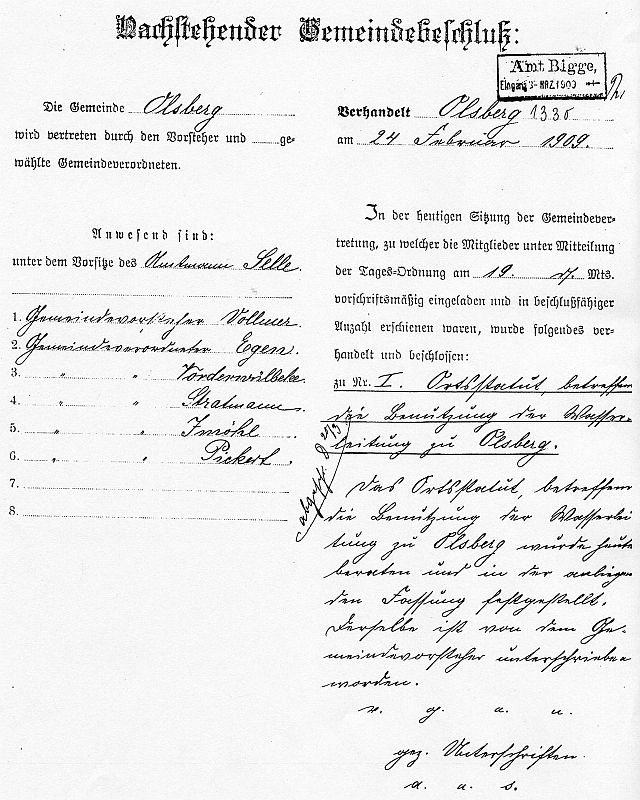 Nachstehender Gemeindebeschluß:
Amt Bigge,
Eingang 3 - MRZ. 1909
Die Gemeinde Olsberg
wird vertreten durch den Vorsteher und ge-
wählte Gemeindeverordneten.
Anwesend sind:
unter dem Vorsitze des Amtmann Selle.
1. Gemeindevorsteher Vollmer
2. Gemeindeverordneter Egen.
3. " " Vorderwülbeke.
4. " " Stratmann.
5. " " Imöhl
6. " " Pickert.
7.
8.
Verhandelt Olsberg 1330
am 24 Februar 1909.
In der heutigen Sitzung der Gemeindever-
tretung, zu welcher die Mitglieder unter Mitteilung
der Tages-Ordnung am 19. d. Mts.
vorschriftsmäßig eingeladen und in beschlußfähiger
Anzahl erschienen waren, wurde folgendes ver-
handelt und beschlossen:
zu Nr. I. Ortsstatut, betreffem
die Benutzung der Wasser-
leitung zu Olsberg.
Das Ortsstatut, betreffem
die Benutzung der Wasserlei
tung zu Olsberg wurde heute
beraten und in der anliegen
den Fassung festgestellt.
Derselbe ist von dem Ge-
meindevorsteher unterschrieben
worden.
v. g. u. u.
gez. Unterschriften.
a. u. s.